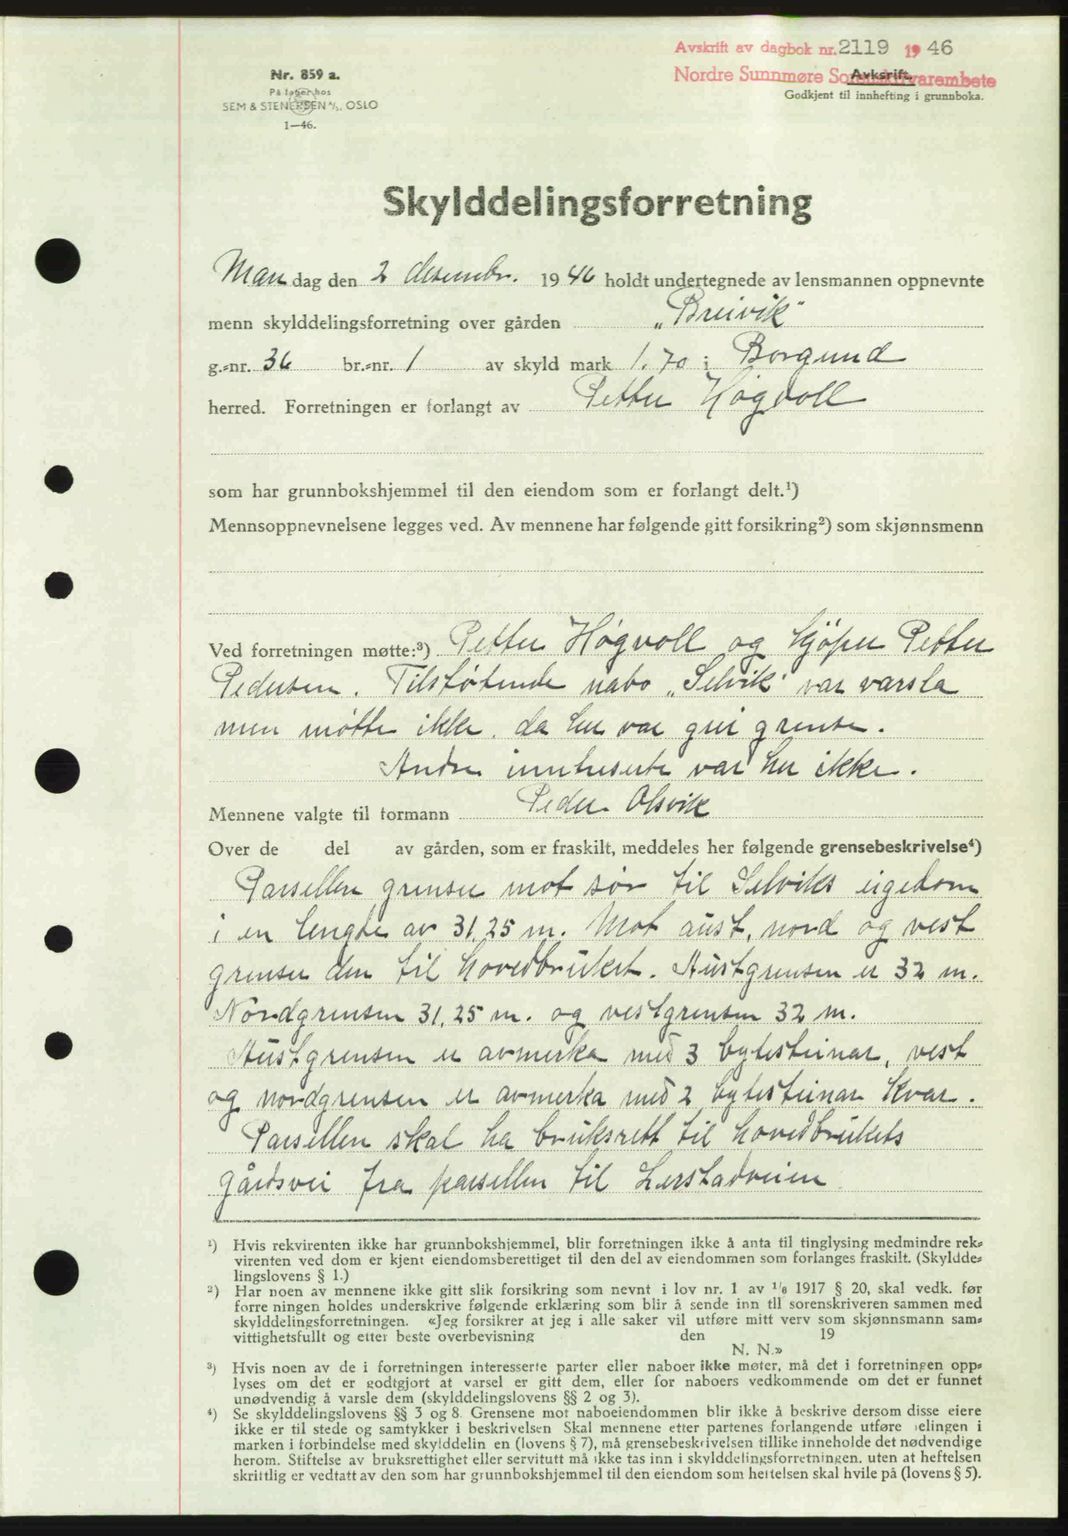 Avskrift av dagbok nr. 2119 1946
Nordre Sunnmøre Sorenskrivarembete
Avskrift.
Godkjent til innhefting i grunnboka.
Nr. 859 a.
På lager hos
SEM & STENERSEN A/S, OSLO
1—46.
Skylddelingsforretning
Mandag den 2 desembr. 1946 holdt undertegnede av lensmannen oppnevnte
menn skylddelingsforretning over gården „Breivik"
g.-nr. 36 br.-nr. 1 av skyld mark 1.70 i Borgund
herred. Forretningen er forlangt av Petter Høgvoll
som har grunnbokshjemmel til den eiendom som er forlangt delt.¹)
Mennsoppnevnelsene legges ved. Av mennene har følgende gitt forsikring²) som skjønnsmenn
Ved forretningen møtte:³) Petter Høgvoll og kjøper Petter
Pedersen. Tilstøtende nabo „Selvik" var varsla
men møtte ikke, da her var grei grense.
Andre innteresserte var her ikke.
Mennene valgte til formann Peder Olsvik
Over de del av gården, som er fraskilt, meddeles her følgende grensebeskrivelse⁴)
Parsellen grenser mot sør til Selviks eigedom
i en lengde av 31,25 m. Mot aust, nord og vest
grenser den til hovedbruket. Austgrensen er 32 m.
Nordgrensen 31,25 m. og vestgrensen 32 m.
Austgrensen er avmerka med 3 bytesteinar, vest
og nordgrensen er avmerka med 2 bytesteinar kvar.
Parsellen skal ha bruksrett til hovedbrukets
gårdsvei fra parsellen til Lerstadveien
¹) Hvis rekvirenten ikke har grunnbokshjemmel, blir forretningen ikke å anta til tinglysing medmindre rek-
virenten ved dom er kjent eiendomsberettiget til den del av eiendommen som forlanges fraskilt. (Skyldde-
lingslovens § 1.)
²) Har noen av mennene ikke gitt slik forsikring som nevnt i lov nr. 1 av 1/6 1917 § 20, skal vedk. før
forretningen holdes underskrive følgende erklæring som blir å sende inn til sorenskriveren sammen med
skylddelingsforretningen. «Jeg forsikrer at jeg i alle saker vil utføre mitt verv som skjønnsmann sam-
vittighetsfullt og etter beste overbevisning den 19
N. N.»
³) Hvis noen av de i forretningen interesserte parter eller naboer ikke møter, må det i forretningen opp-
lyses om det er godtgjort at varsel er gitt dem, eller for naboers vedkommende om det er funnet
unødvendig å varsle dem (skylddelingslovens §§ 2 og 3).
⁴) Se skylddelingslovens §§ 3 og 8. Grensene mot naboeiendommen blir ikke å beskrive dersom disse eiere
ikke er til stede og samtykker i beskrivelsen Skal mennene etter partenes forlangende utføre delingen i
marken i forbindelse med skylddelingen (lovens § 7), må grensebeskrivelsen tillike inneholde det nødvendige
herom. Stiftelse av bruksrettighet eller servitutt må ikke tas inn i skylddelingsforretningen. uten at heftelsen
skriftlig er vedtatt av den som har grunnbokshjemmel til den eiendom som heftelsen skal hvile på (lovens § 5).